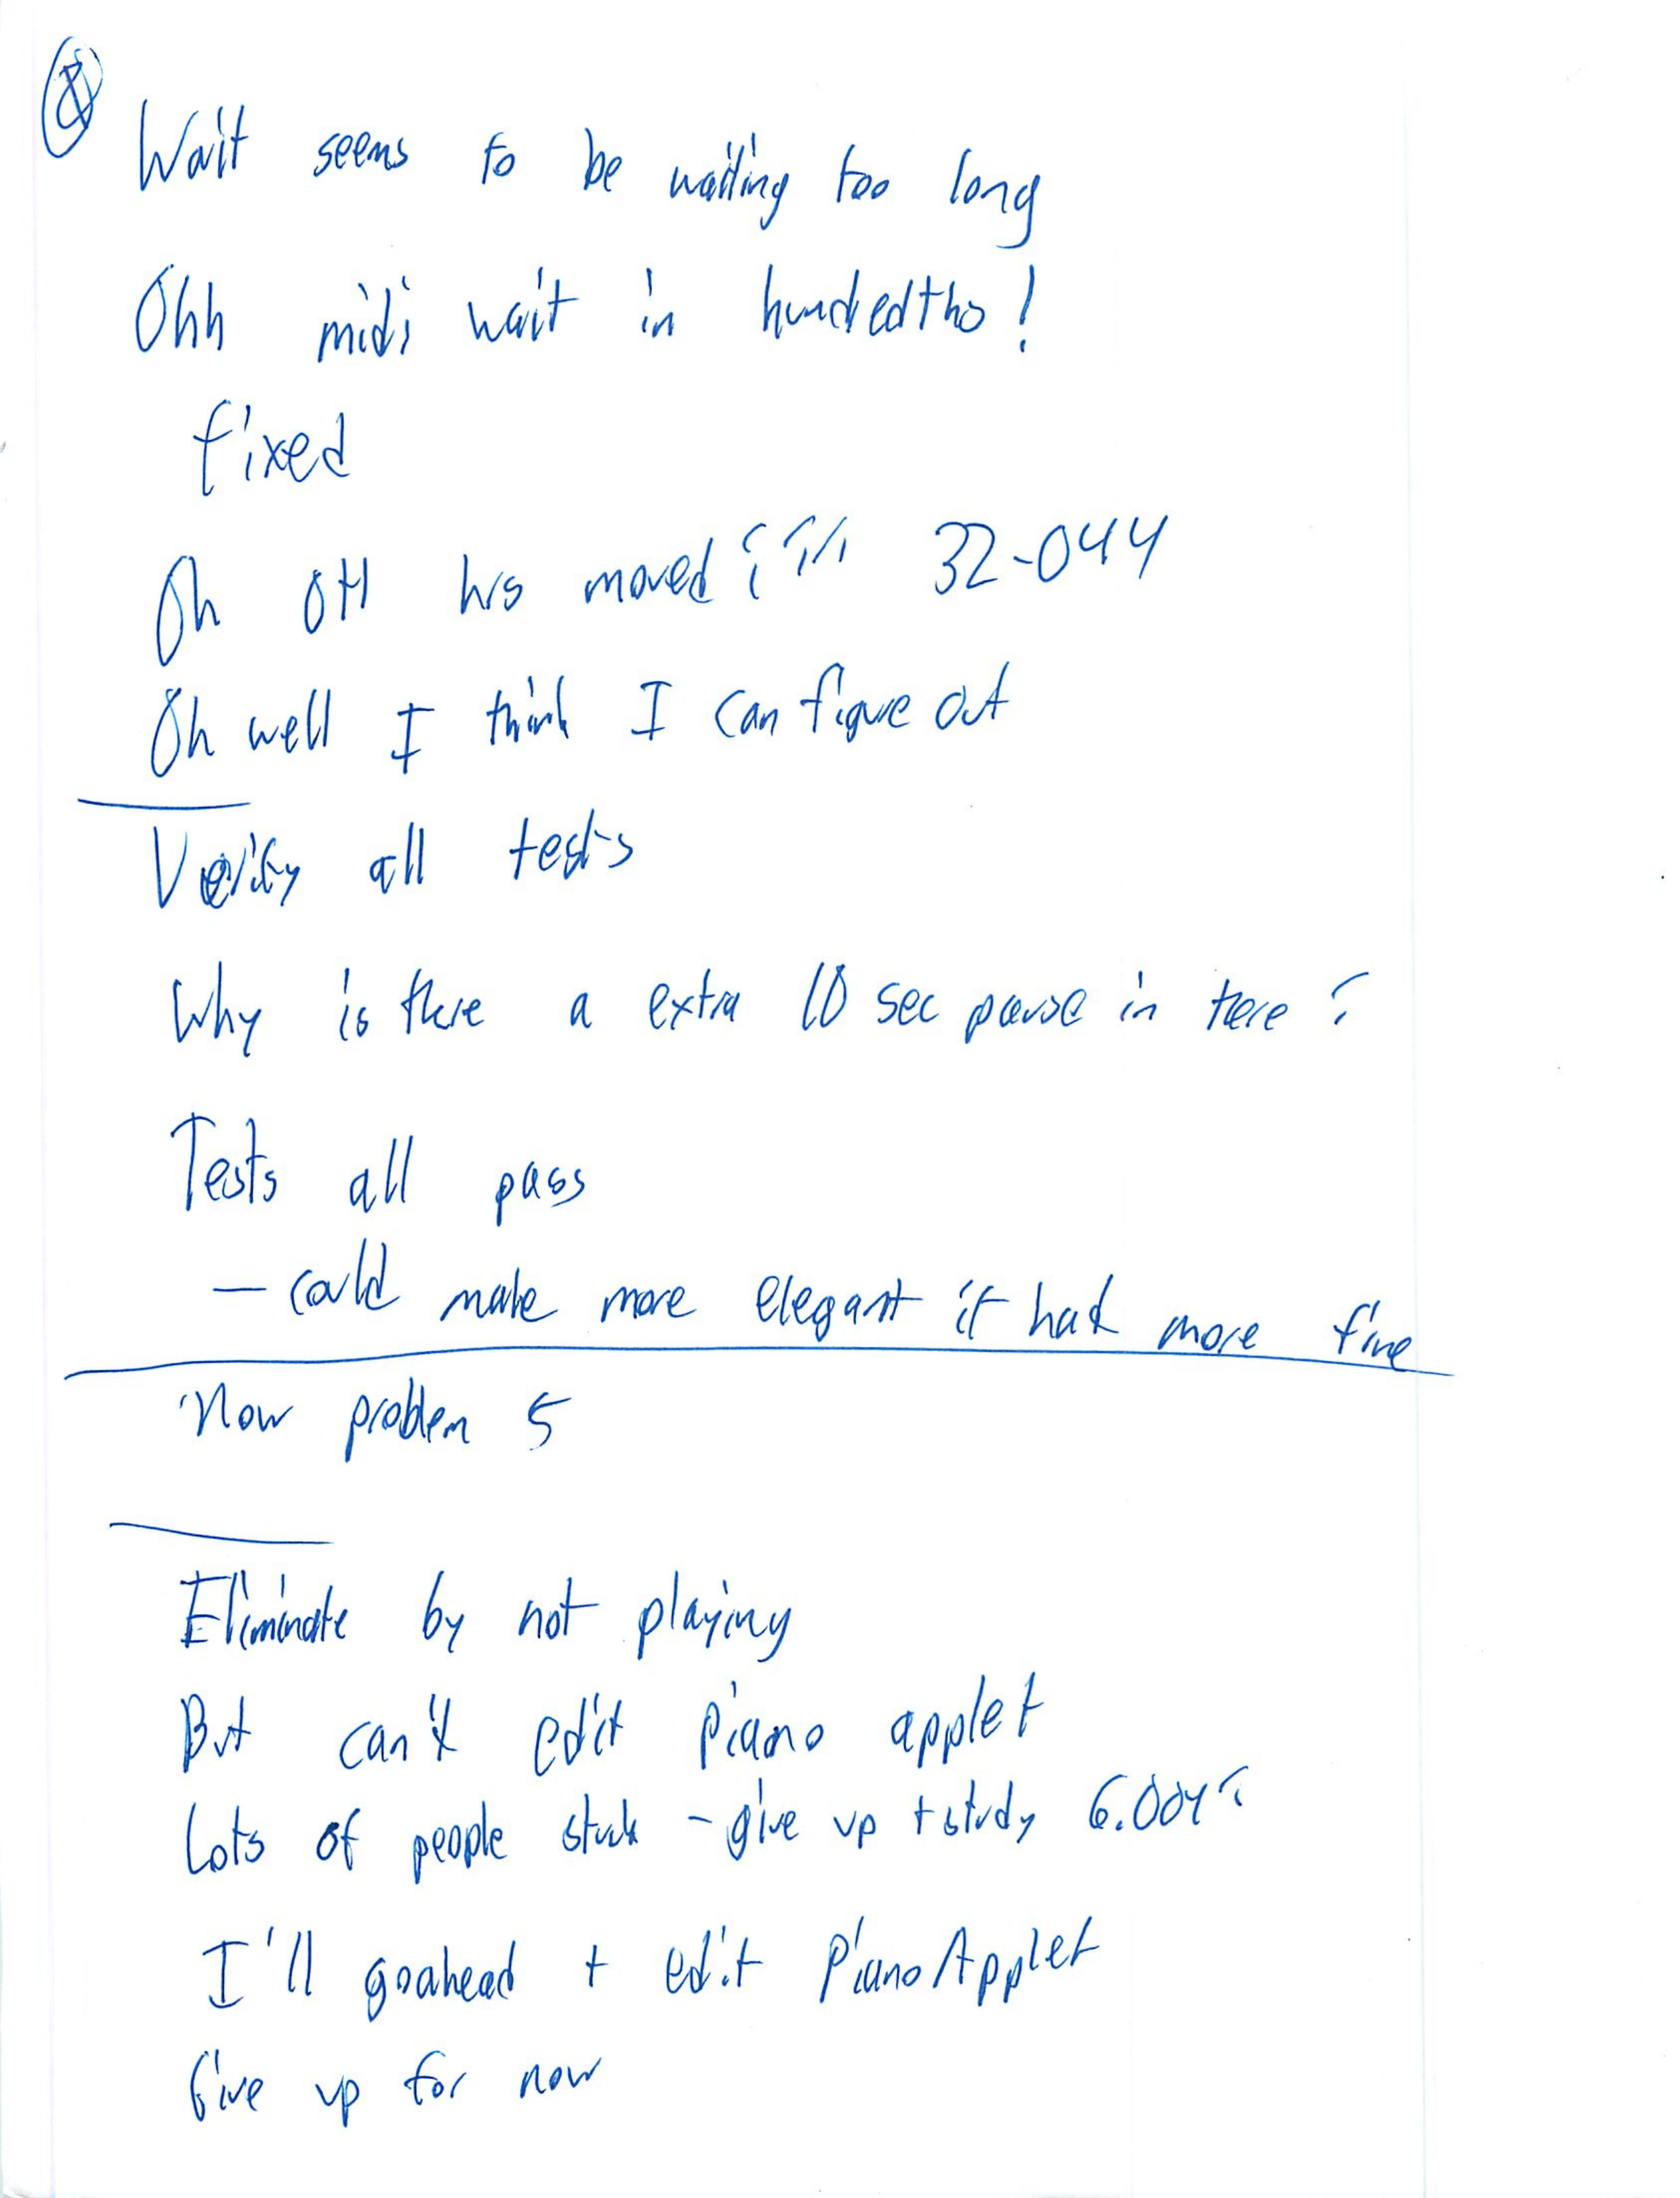 8
Wait seems to be waiting too long
Ohh midi wait in hundredths!
fixed
Oh OH hrs moved 32-044
Oh well I think I can figure out
Verify all tests
Why is there a extra 10 sec pause in here?
Tests all pass
- could make more elegant if had more time
Now problem 5
Eliminate by not playing
But can't edit piano applet
Lots of people stuck - give up + study 6.004?
I'll goahead + edit PianoApplet
Give up for now